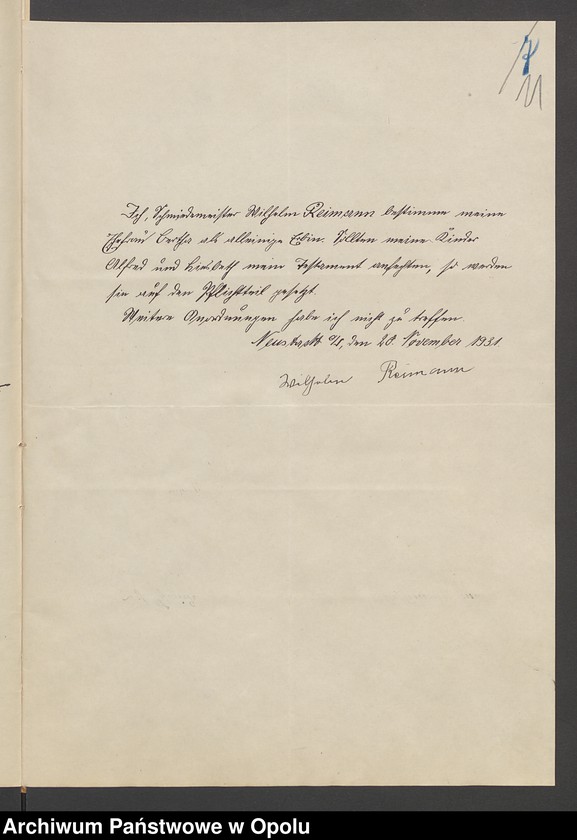 11
Ich, Schmiedemeister Wilhelm Reimann bestimme meine
Ehefrau Bertha als alleinige Erbin. Sollten meine Kinder
Alfred und Lisbeth mein Testament anfechten, so werden
sie auf den Pflichtteil gesetzt.
Weitere Anordnungen habe ich nicht zu treffen.
Neustadt O/S, den 28. November 1931
Wilhelm Reimann
Archiwum Państwowe w Opolu